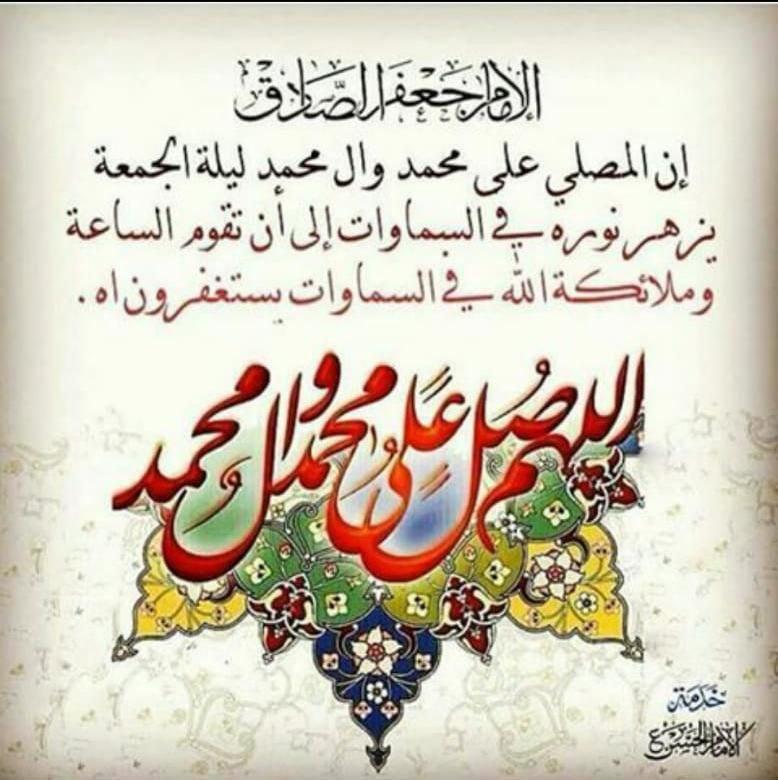 الإمام جعفر الصادق
إن المصلي على محمد وال محمد ليلة الجمعة
يزهر نوره في السماوات إلى أن تقوم الساعة
وملائكة الله في السماوات يستغفرون اه .
اللهم صل على محمد وال محمد
خدمة
الإمام الحسين ع